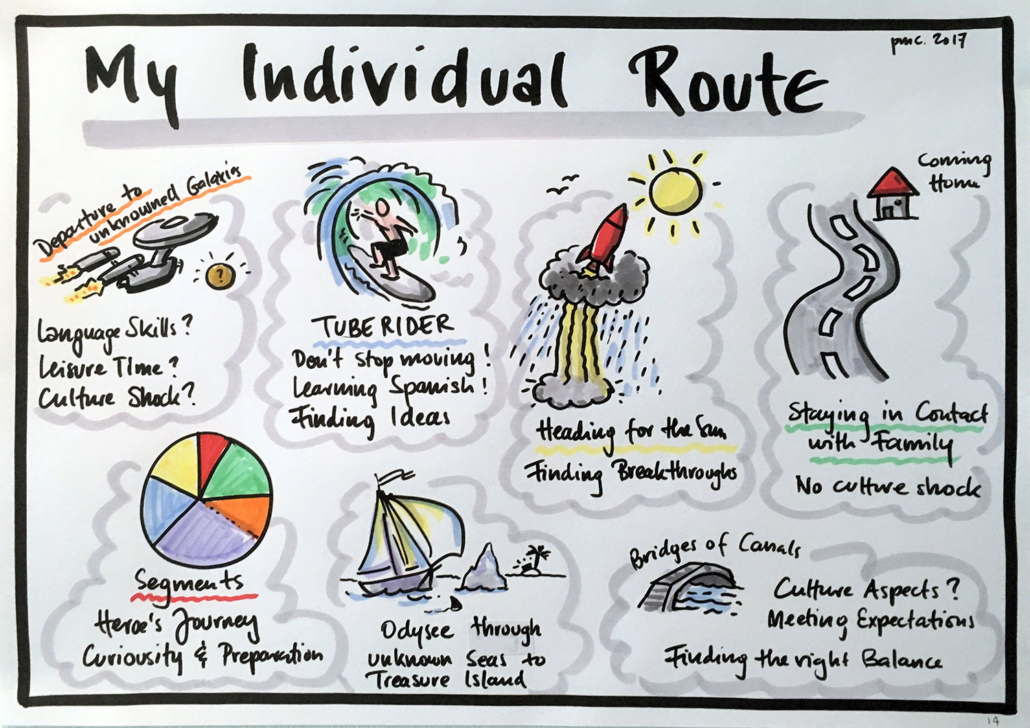 pmc. 2017
My Individual Route
Departure to
unknowned Galaxis
?
Language Skills?
Leisure Time?
Culture Shock?
TUBE RIDER
Don't stop moving!
Learning Spanish!
Finding Ideas
Heading for the Sun
Finding Breakthroughs
Coming
Home
Staying in Contact
with Family
No culture shock
Segments
Heroe's Journey
Curiousity & Preparation
Odysee through
unknown Seas to
Treasure Island
Bridges of Canals
Culture Aspects?
Meeting Expectations
Finding the right Balance
14